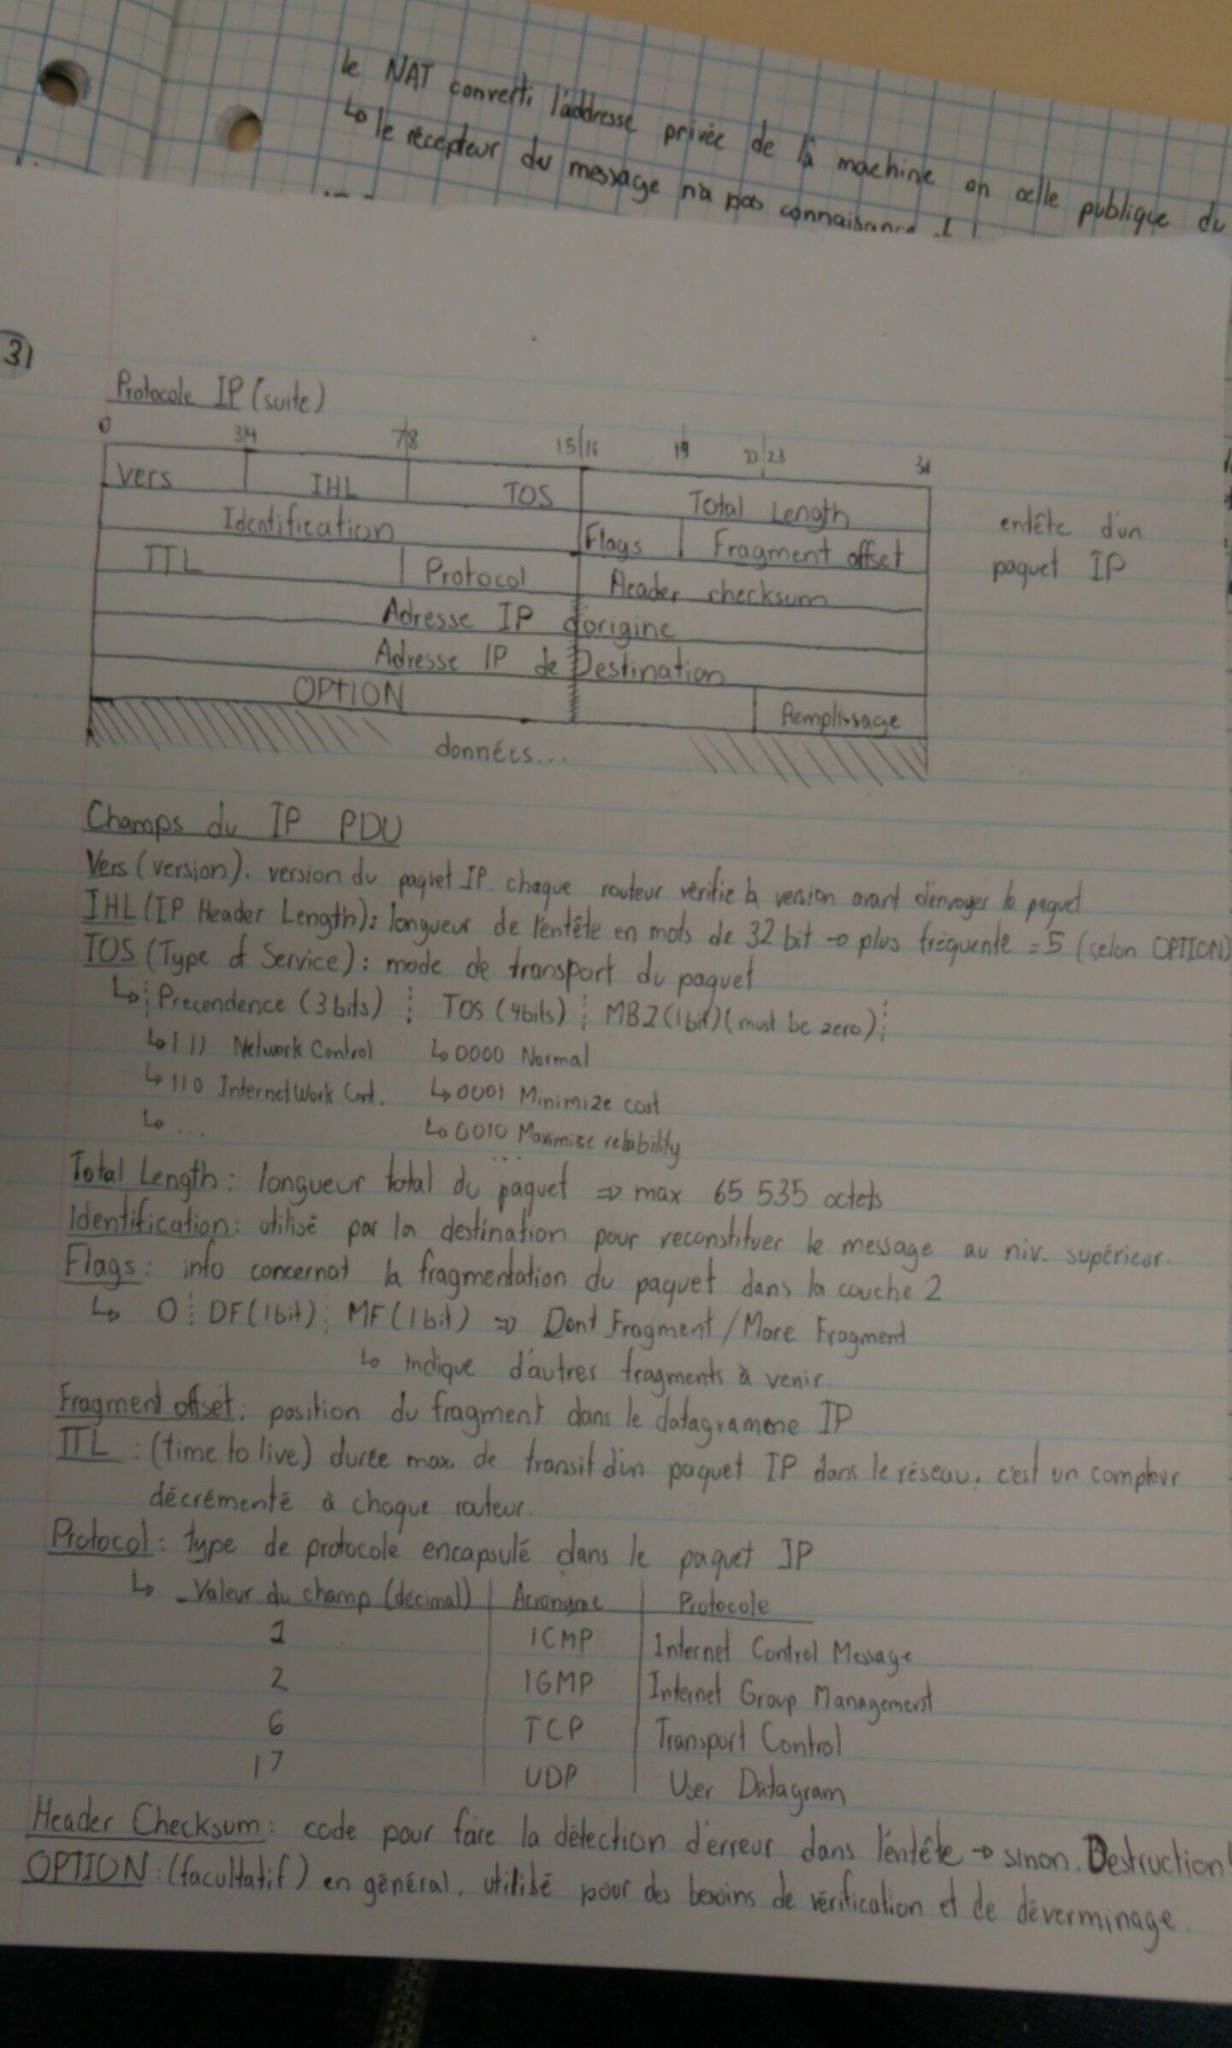 le NAT converti l'addresse privée de la machine en celle publique du
↳ le récepteur du message n'a pas connaisance
31
Protocole IP (suite)
0 3|4 7|8 15|16 19 22|23 31
Vers IHL TOS Total Length
Identification Flags Fragment offset
TTL Protocol Header checksum
Adresse IP d'origine
Adresse IP de Destination
OPTION Remplissage
données...
entête d'un
paquet IP
Champs du IP PDU
Vers (version): version du paquet IP. chaque routeur vérifie la version avant d'envoyer le paquet
IHL (IP Header Length): longueur de l'entête en mots de 32 bit → plus fréquente = 5 (selon OPTION)
TOS (Type of Service): mode de transport du paquet
↳ ¦ Precendence (3 bits) ¦ TOS (4bits) ¦ MBZ (1 bit) (must be zero) ¦
↳ 111 Network Control ↳ 0000 Normal
↳ 110 InternetWork Cont. ↳ 0001 Minimize cost
↳ ... ↳ 0010 Maximise reliability
...
Total Length: longueur total du paquet ⇒ max 65 535 octets
Identification: utilisé par la destination pour reconstituer le message au niv. supérieur.
Flags: info concernat la fragmentation du paquet dans la couche 2
↳ 0 ¦ DF (1bit) ¦ MF (1 bit) ⇒ Dont Fragment / More Fragment
↳ indique d'autres fragments à venir.
Fragment offset: position du fragment dans le datagramme IP
TTL: (time to live) durée max. de transit d'un paquet IP dans le réseau. c'est un compteur
décrémenté à chaque routeur.
Protocol: type de protocole encapsulé dans le paquet IP
↳ Valeur du champ (décimal) Acronyme Protocole
1 ICMP Internet Control Message
2 IGMP Internet Group Management
6 TCP Transport Control
17 UDP User Datagram
Header Checksum: code pour faire la détection d'erreur dans l'entête → sinon. Destruction!
OPTION: (facultatif) en général. utilisé pour des besoins de vérification et de déverminage.